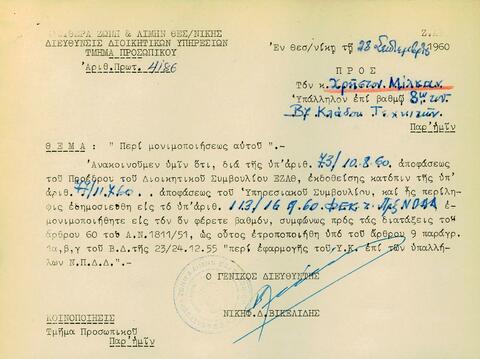 ΕΛΕΥΘΕΡΑ ΖΩΝΗ & ΛΙΜΗΝ ΘΕΣ/ΝΙΚΗΣ
ΔΙΕΥΘΥΝΣΙΣ ΔΙΟΙΚΗΤΙΚΩΝ ΥΠΗΡΕΣΙΩΝ
ΤΜΗΜΑ ΠΡΟΣΩΠΙΚΟΥ
Ἀριθ.Πρωτ. 4/86
Ἐν Θεσ/νίκῃ τῇ 28 Σεπτεμβρίου 1960
Π Ρ Ο Σ
Τόν κ. Χρῆστον
Ὑπάλληλον ἐπί βαθμῷ 8ῳ τοῦ
Κλάδου Τεχνιτῶν
Παρ'ἡμῖν
Θ Ε Μ Α : "Περί μονιμοποιήσεως αὐτοῦ".-
Ἀνακοινοῦμεν ὑμῖν ὅτι, διά τῆς ὑπ'ἀριθ. 73/10.8.60. ἀποφάσεως
τοῦ Προέδρου τοῦ Διοικητικοῦ Συμβουλίου ΕΖΛΘ, ἐκδοθείσης κατόπιν τῆς ὑπ'
ἀριθ. ἀποφάσεως τοῦ Ὑπηρεσιακοῦ Συμβουλίου, καί ἧς περίλη-
ψις ἐδημοσιεύθη εἰς τό ὑπ'ἀριθ. 113/16.9.60 ΦΕΚ τ. ΝΠΔΔ
ἐμονιμοποιήθητε εἰς τόν ὅν φέρετε βαθμόν, συμφώνως πρός τάς διατάξεις τοῦ
ἄρθρου 60 τοῦ Α.Ν.1811/51, ὡς οὗτος ἐτροποποιήθη ὑπό τοῦ ἄρθρου 9 παράγρ.
1α,β,γ τοῦ Β.Δ.τῆς 23/24.12.55 "περί ἐφαρμογῆς τοῦ Υ.Κ. ἐπί τῶν ὑπαλλή-
λων Ν.Π.Δ.Δ.".-
Ο ΓΕΝΙΚΟΣ ΔΙΕΥΘΥΝΤΗΣ
ΝΙΚΗΦ.Δ.ΒΙΚΕΛΙΔΗΣ
ΚΟΙΝΟΠΟΙΗΣΙΣ
Τμῆμα Προσωπικοῦ
Παρ'ἡμῖν